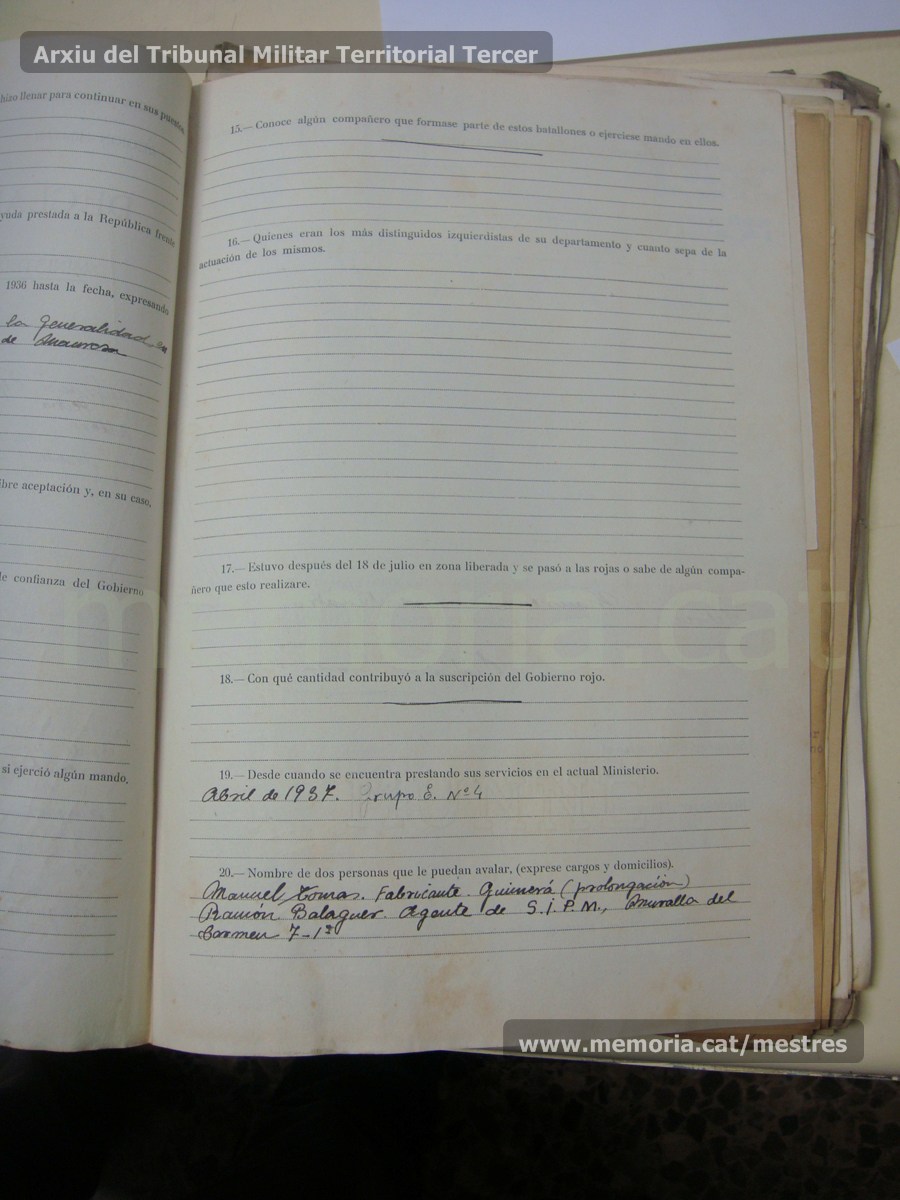 Arxiu del Tribunal Militar Territorial Tercer
hizo llenar para continuar en sus puestos
yuda prestada a la República frente
1936 hasta la fecha, expresando
la Generalidad, en
de Manresa
ibre aceptación y, en su caso,
le confianza del Gobierno
si ejerció algún mando.
15.— Conoce algún compañero que formase parte de estos batallones o ejerciese mando en ellos.
16.— Quienes eran los más distinguidos izquierdistas de su departamento y cuanto sepa de la
actuación de los mismos.
17.— Estuvo después del 18 de julio en zona liberada y se pasó a las rojas o sabe de algún compa-
ñero que esto realizare.
memoria.cat
18.— Con qué cantidad contribuyó a la suscripción del Gobierno rojo.
19.— Desde cuando se encuentra prestando sus servicios en el actual Ministerio.
Abril de 1937. Grupo E. Nº 4
20.— Nombre de dos personas que le puedan avalar, (exprese cargos y domicilios).
Manuel Tomas. Fabricante. Guimerá (prolongación)
Ramón Balaguer. Agente de S.I.P.M., Muralla del
Carmen 7-1º
www.memoria.cat/mestres